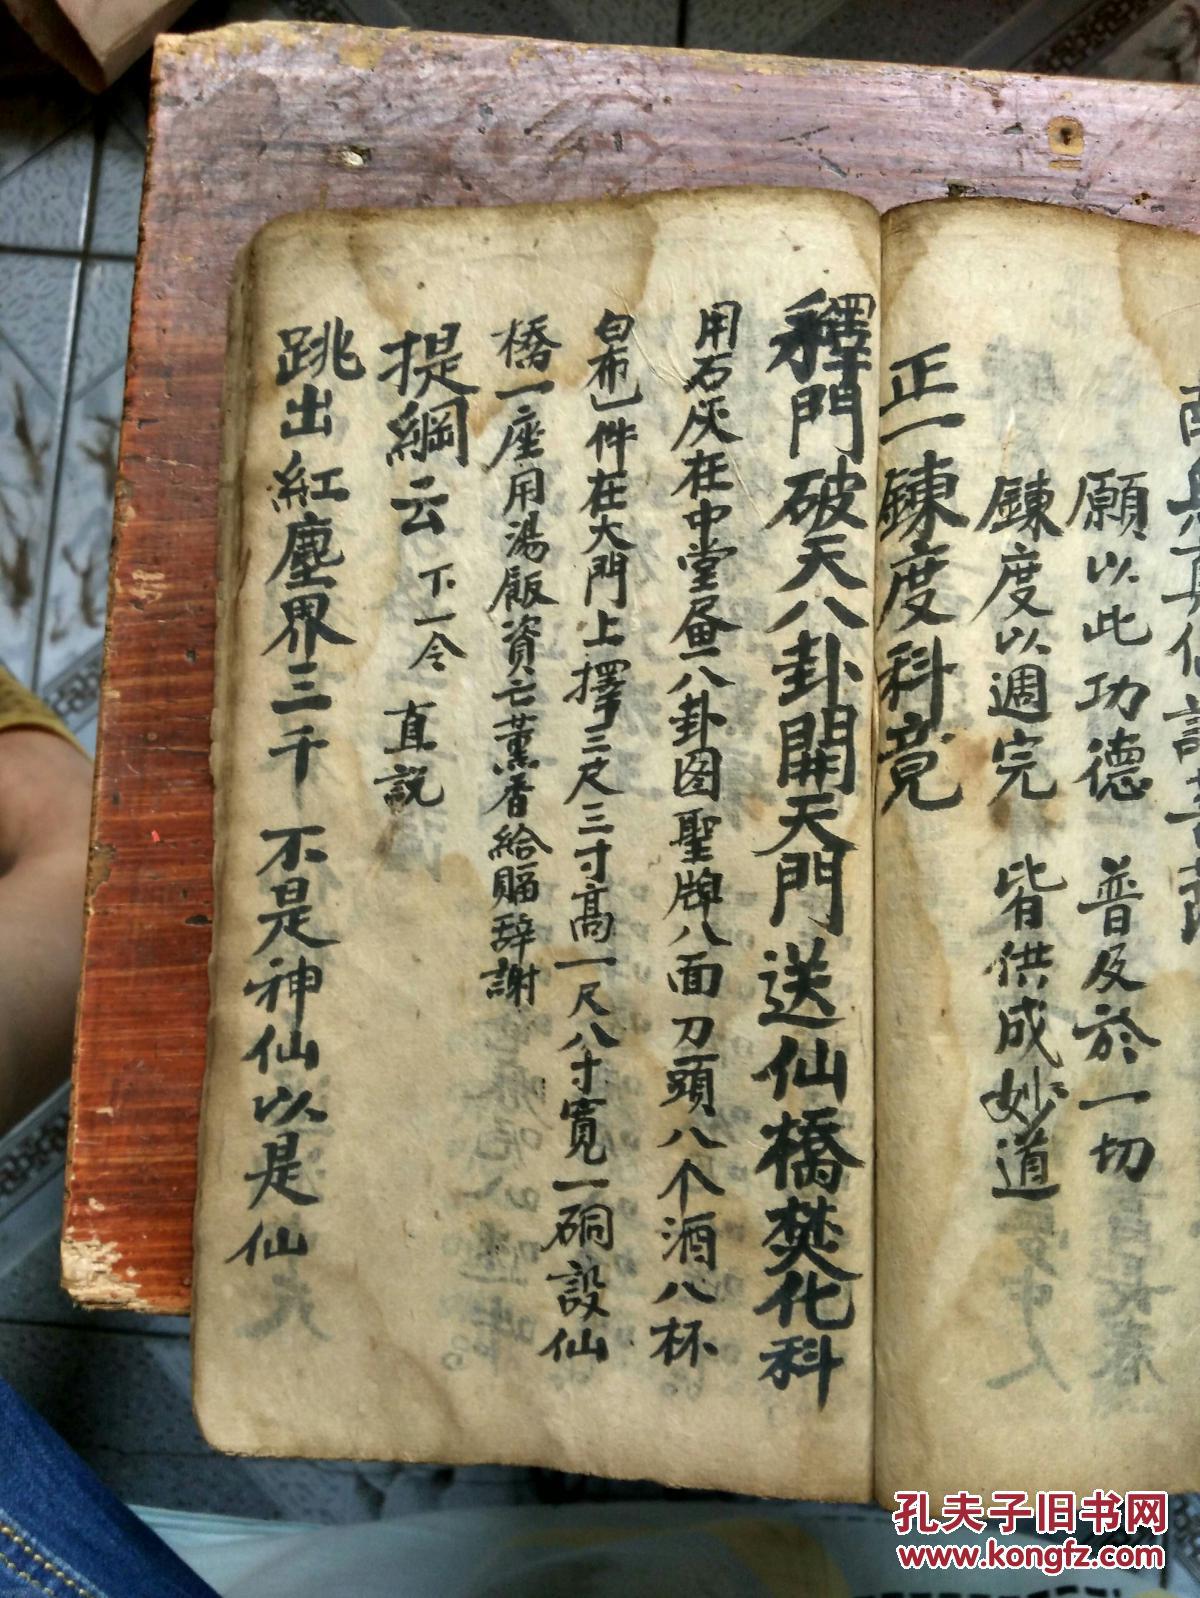 願以此功德 普及於一切
鍊度以週完 皆供成妙道
正一鍊度科竟
釋門破天八卦開天門送仙橋焚化科
用石灰在中堂畫八卦图聖牌八面刀頭八个酒八杯
白布一件在大門上擇了三尺三寸高一尺八寸寬一硐設仙
橋一座用湯飯資亡薰香給賜辞謝
提綱云 下一令 直説
跳出紅塵界三千 不是神仙以是仙
孔夫子旧书网
www.kongfz.com